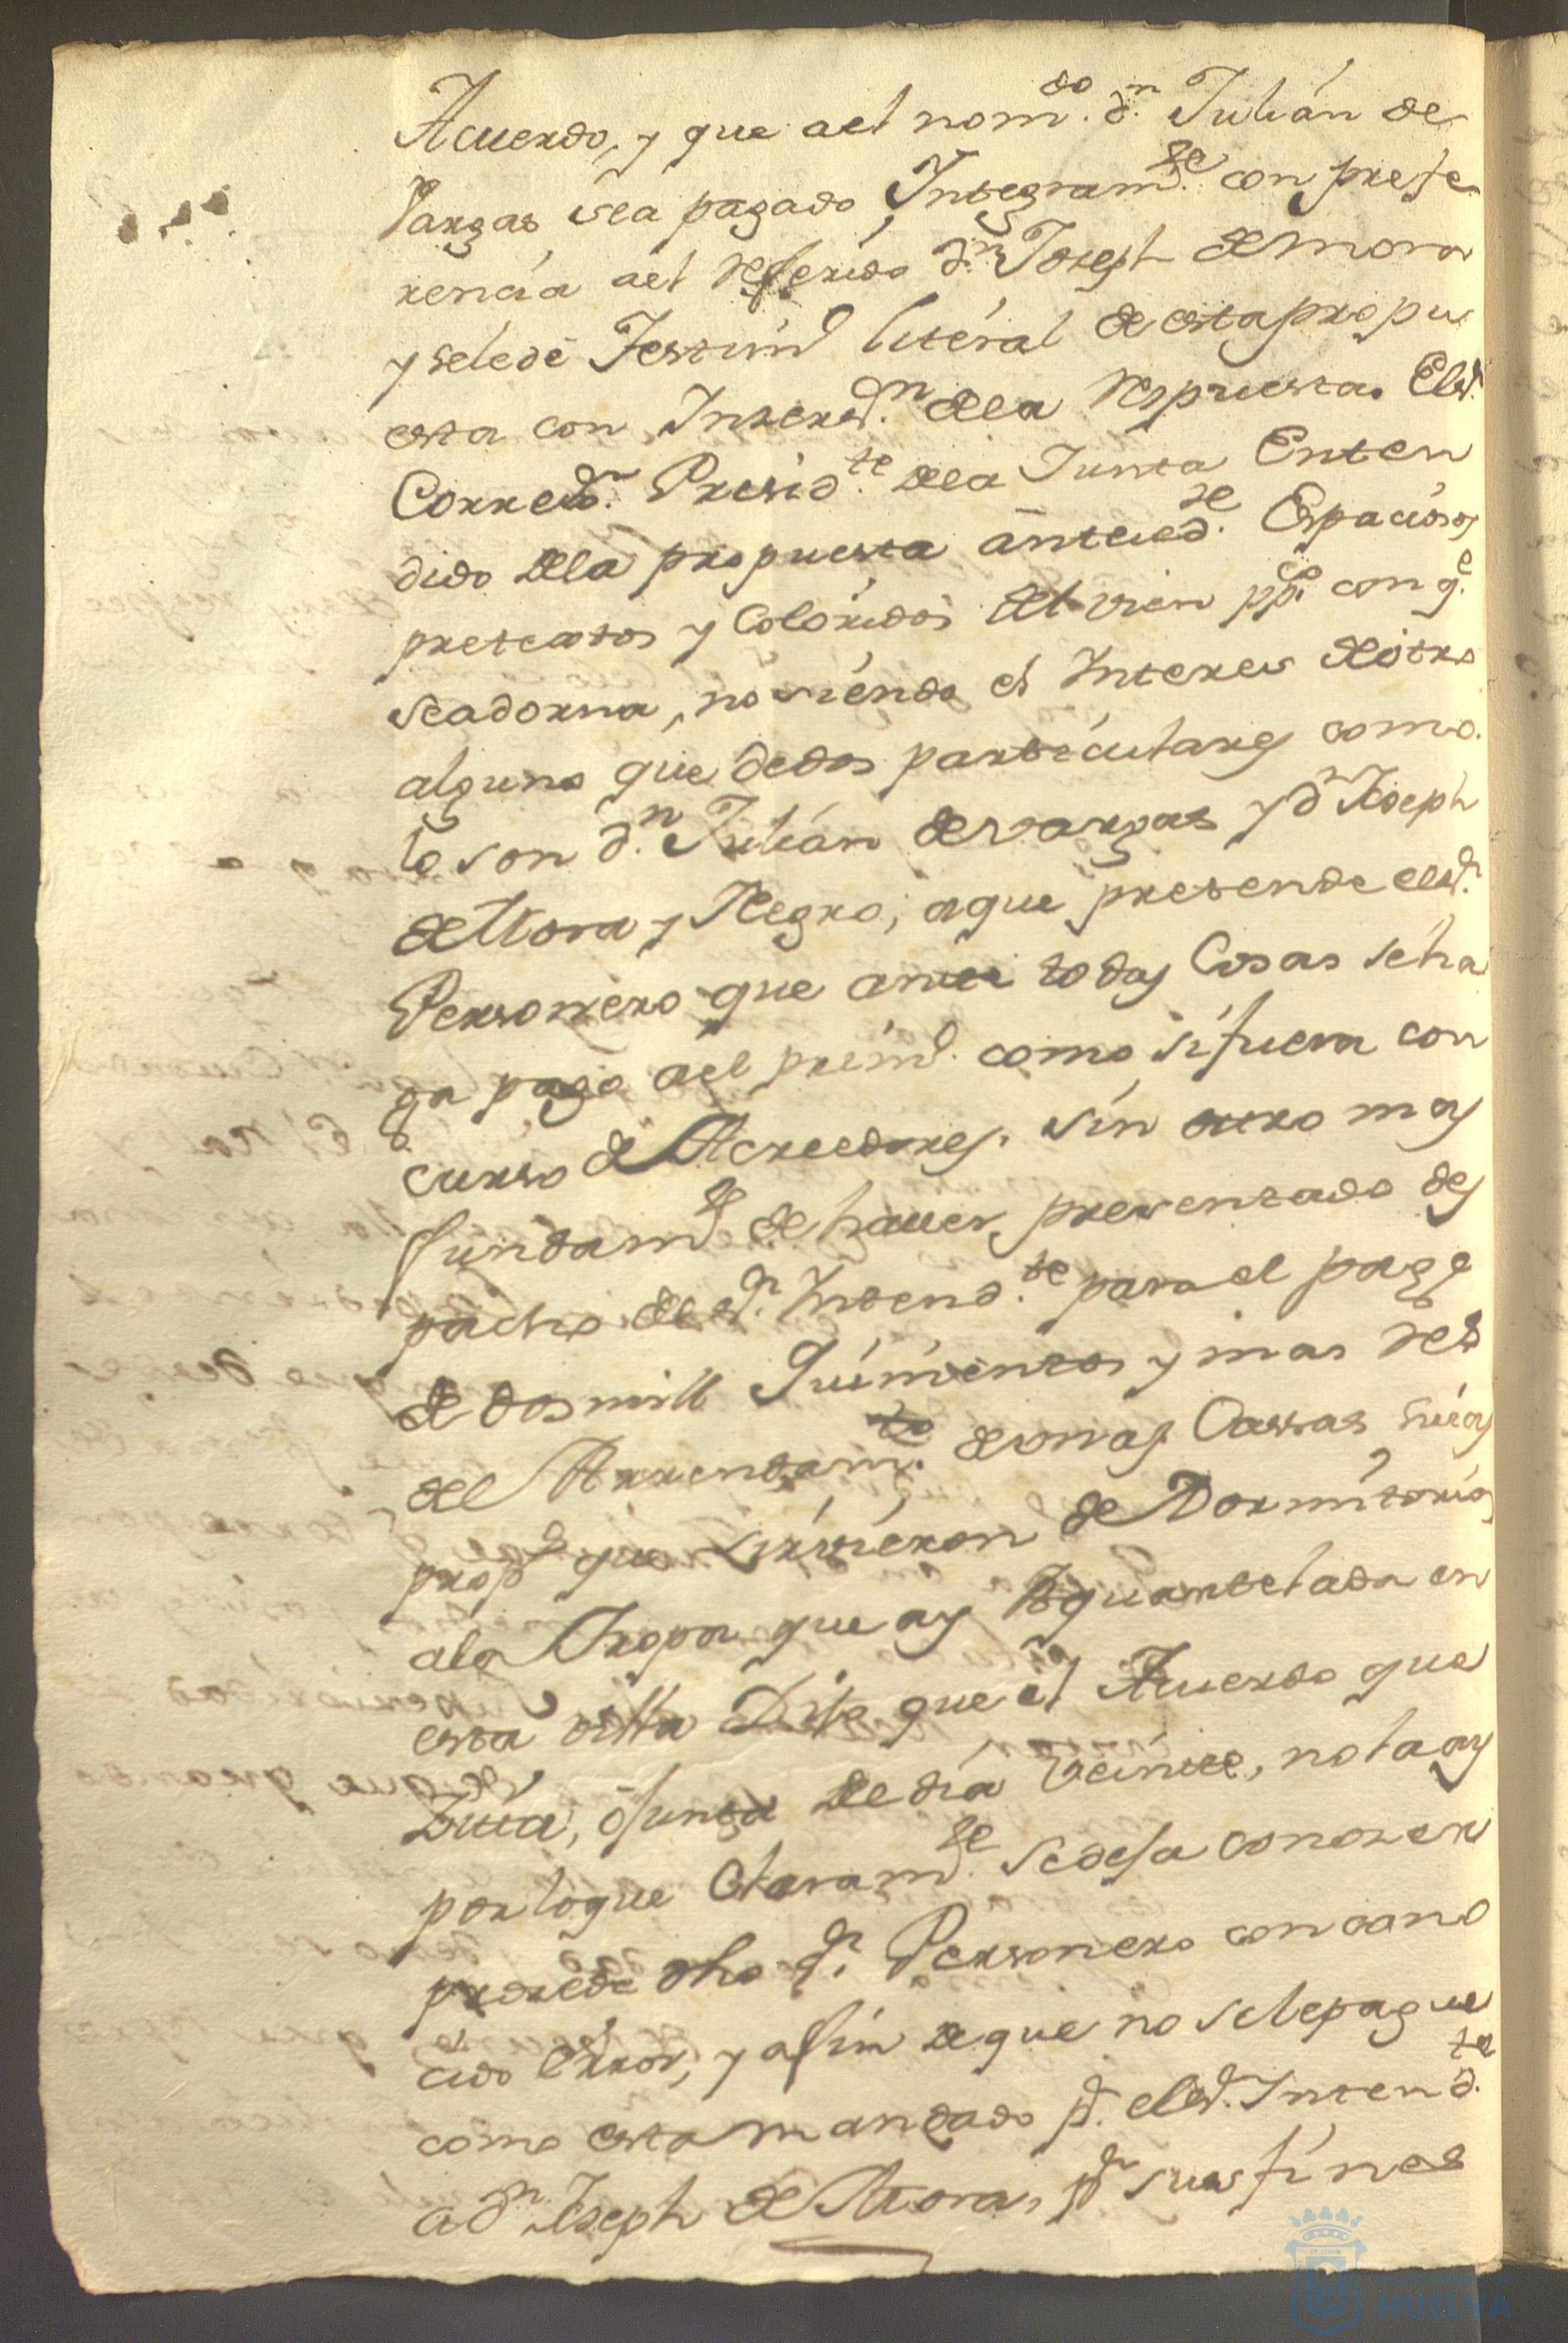 Acuerdo, y que ael nom.do d.n Julián de
Vargas sea pagado Integram.te con prefe
rencia ael referido d.n Joseph de Mora
y sele dé Testim.o literal de esta propu
esta con Inserz.n dela respuesta. El S.r
Correx.or Presid.te dela Junta Enten
dido dela propuesta anteced.te Espaciosos
pretextos y Coloridos del vien pp.co con q.e
se adorna, no siendo el Interes de otro
alguno que de dos particulares como
lo son d.n Julián de Vargas y d.n Joseph
de Mora y Negro, a que pretende el S.r
Personero que antte todas Cosas se ha
ga pago ael prim.o como si fuera con
curso de Acreedores, sin otro mas
fundam.to de haver presentado des
pacho del S.r Intend.te para el pago
de dos mill Quinientos y mas rs
del Arrendam.to de unas Cassas suias
prop.s que sirvieron de Dormitorios
ala Tropa que ay Aquartelada en
esta villa Dijo que el Acuerdo que
Zitta, ó Junta de dia veinte, no la ay
por lo que Claram.te se deja conozer
prozede dho S.r Personero con cono
cido Error, y a fin de que no sele pague
como esta mandado p.r el S.r Intend.te
a d.n Joseph de Mora, p.r sus fines
HUELVA